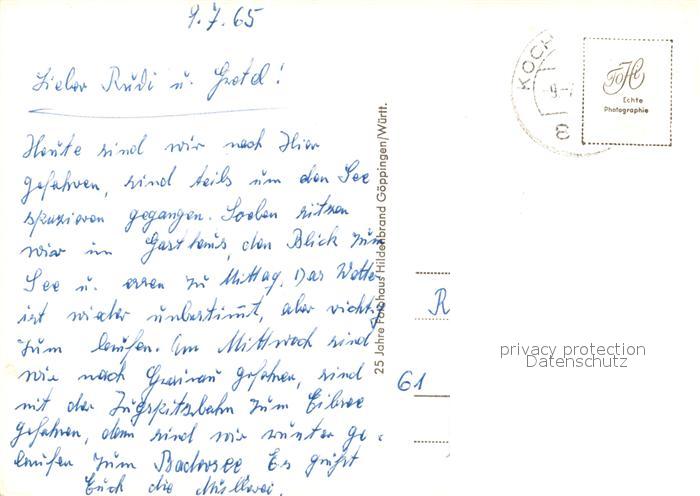 9.7.65
Lieber Rudi u. Gretel!
Heute sind wir nach Hier
gefahren, sind teils um den See
spazieren gegangen. Soeben sitzen
wir im Gasthaus, den Blick zum
See u. essen zu Mittag. Das Wetter
ist wieder unbestimmt, aber richtig
zum laufen. Am Mittwoch sind
wir nach Grainau gefahren, sind
mit der Zugspitzbahn zum Eibsee
gefahren, dann sind wir runter ge-
laufen zum Badersee. Es grüßt
Euch die
25 Jahre Fotohaus Hildenbrand Göppingen/Württ.
KOCH
-9.-7
8
ToHi
Echte
Photographie
R
61
privacy protection
Datenschutz